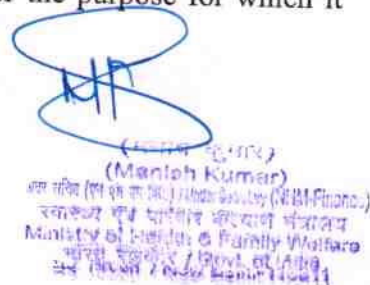 the purpose for which it
कुमार)
(Manish Kumar)
अवर सचिव / Under Secretary (NHM-Finance)
स्वास्थ्य एवं परिवार कल्याण मंत्रालय
Ministry of Health & Family Welfare
भारत सरकार / Govt. of India
नई दिल्ली / New Delhi